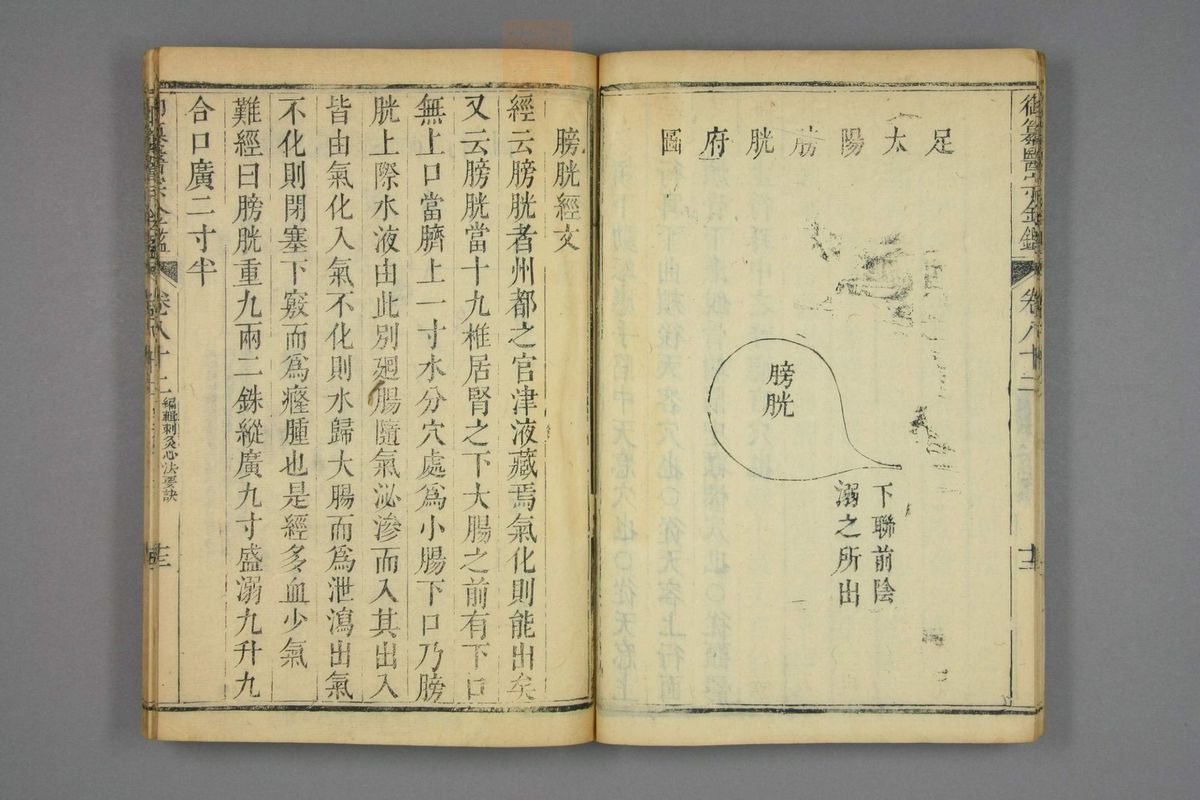 御纂醫宗金鑑 卷八十二
足太陽膀胱府圖
膀胱
下聯前陰
溺之所出
膀胱經文
經云膀胱者州都之官津液藏焉氣化則能出矣
又云膀胱當十九椎居腎之下大腸之前有下口
無上口當臍上一寸水分穴處爲小腸下口乃膀
胱上際水液由此別廻腸隨氣泌滲而入其出入
皆由氣化入氣不化則水歸大腸而爲泄瀉出氣
不化則閉塞下竅而爲癃腫也是經多血少氣
難經曰膀胱重九兩二銖縱廣九寸盛溺九升九
合口廣二寸半
御纂醫宗金鑑 卷八十二 編輯刺灸心法要訣